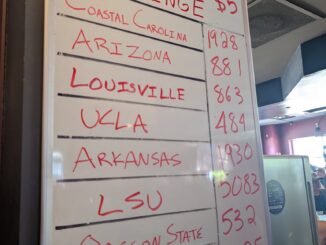 NGE $5
COASTAL CAROLINA 1928
ARIZONA 881
LOUISVILLE 863
UCLA 484
ARKANSAS 1930
LSU 5083
OREGON STATE 532